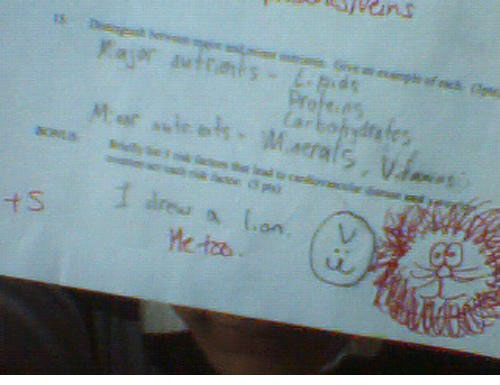 15. Distinguish between major and minor nutrients. Give an example of each.
Major nutrients - Lipids
Proteins
Carbohydrates
Minor nutrients - Minerals, Vitamins
BONUS: Briefly list 5 risk factors that lead to cardiovascular disease and
counter act each risk factor. (5 pts)
+5
I drew a lion.
Me too.